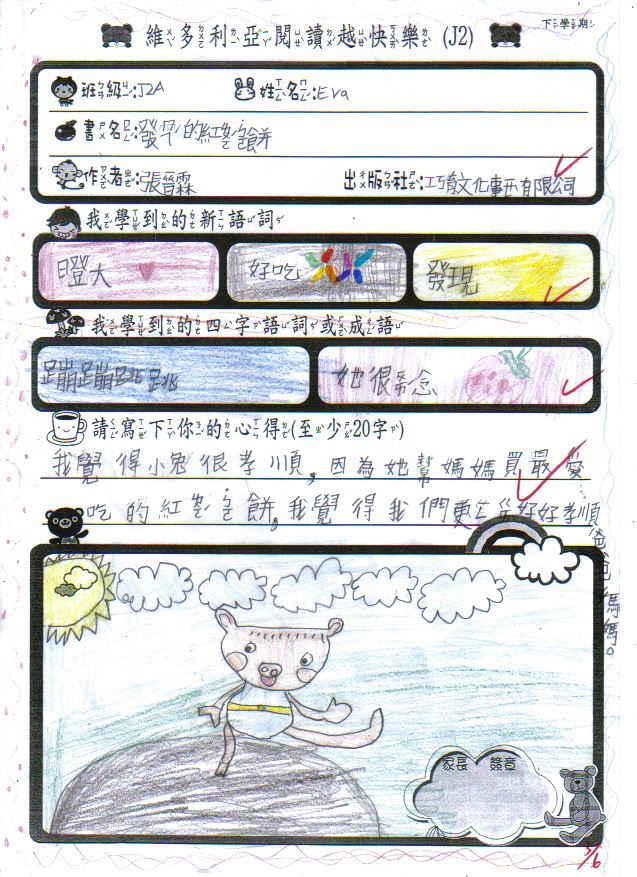 下學期
維多利亞閱讀越快樂 (J2)
班級:J2A 姓名:Eva
書名:發ㄕㄠ的紅ㄉㄡˋㄉㄡˋ餅
作者:張晉霖 出版社:巧育文化事業有限公司
我學到的新語詞
瞪大 好吃 發現
我學到的四字語詞或成語
蹦蹦跳跳 她很
請寫下你的心得(至少20字)
我覺得小兔很孝順,因為她幫媽媽買最愛
吃的紅 餅,我覺得我們 好好孝順
爸爸媽媽。
家長 簽章
3/6